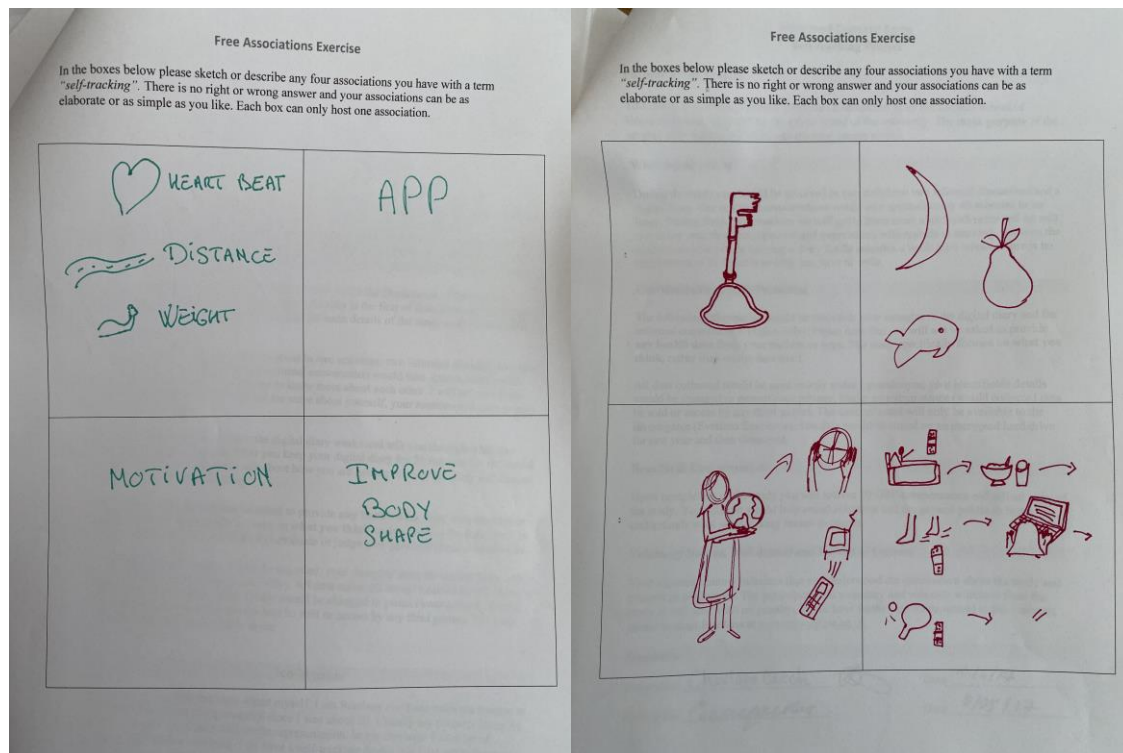 Free Associations Exercise
In the boxes below please sketch or describe any four associations you have with a term
"self-tracking". There is no right or wrong answer and your associations can be as
elaborate or as simple as you like. Each box can only host one association.
HEART BEAT
DISTANCE
WEIGHT
APP
MOTIVATION
IMPROVE
BODY
SHAPE
Free Associations Exercise
In the boxes below please sketch or describe any four associations you have with a term
"self-tracking". There is no right or wrong answer and your associations can be as
elaborate or as simple as you like. Each box can only host one association.